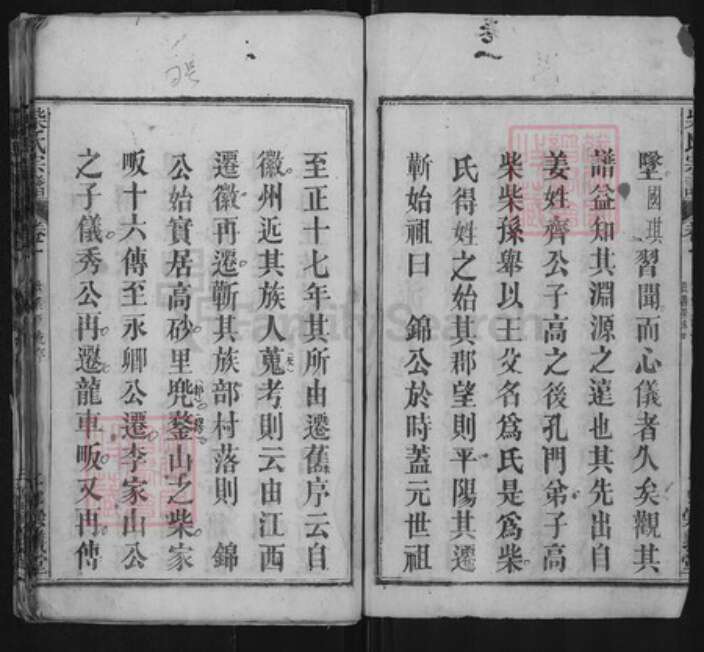 卷一
墜國琪習聞而心儀者久矣觀其
譜益知其淵源之遠也其先出自
姜姓齊公子高之後孔門弟子高
柴柴孫舉以王父名為氏是為柴
氏得姓之始其郡望則平陽其遷
蘄始祖曰 錦公於時蓋元世祖
至正十七年其所由遷舊序云自
徽州近其族人蒐考則云由江西
遷徽再遷蘄其族部村落則 錦
公始實居高砂里兠鍪山之柴家
畈十六傳至永卿公遷李家山公
之子儀秀公再遷龍車畈又再傳
柴氏宗譜
FamilySearch